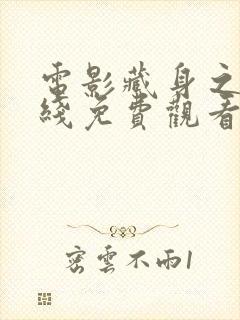 電影藏身之
綫免費觀看
密雲不雨1